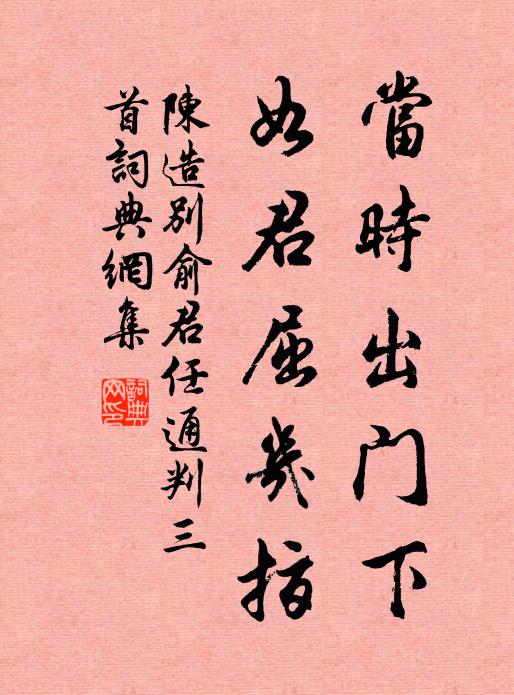 當時出门下
如君屈幾指
陳造別俞君任通判三
首詞典網集
詞典
网印